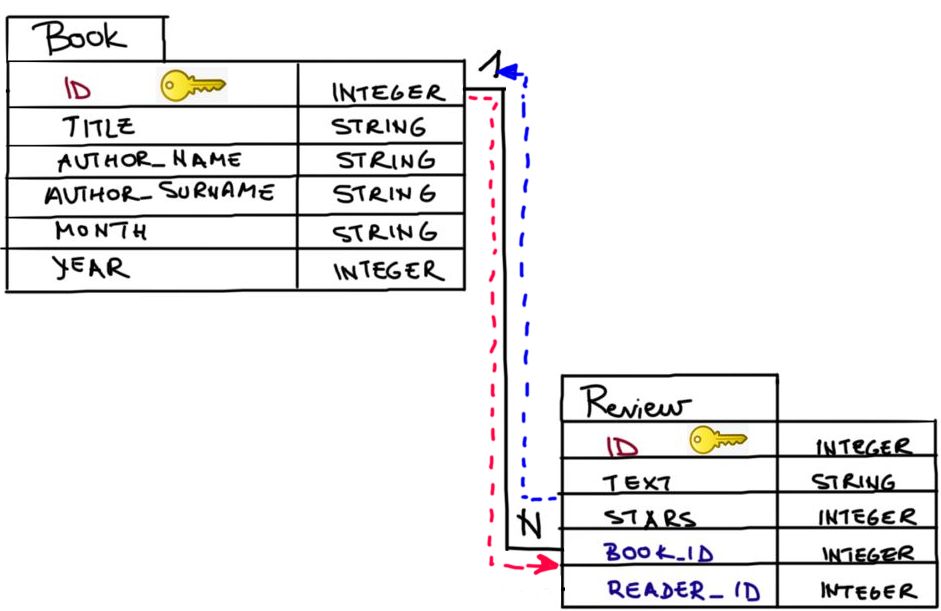 Book
ID INTEGER
TITLE STRING
AUTHOR_NAME STRING
AUTHOR_SURNAME STRING
MONTH STRING
YEAR INTEGER
1
N
Review
ID INTEGER
TEXT STRING
STARS INTEGER
BOOK_ID INTEGER
READER_ID INTEGER